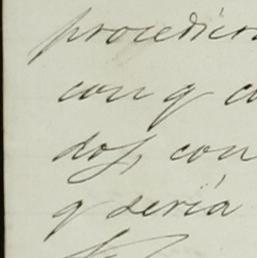 procedier
con q co
dos, con
q sería